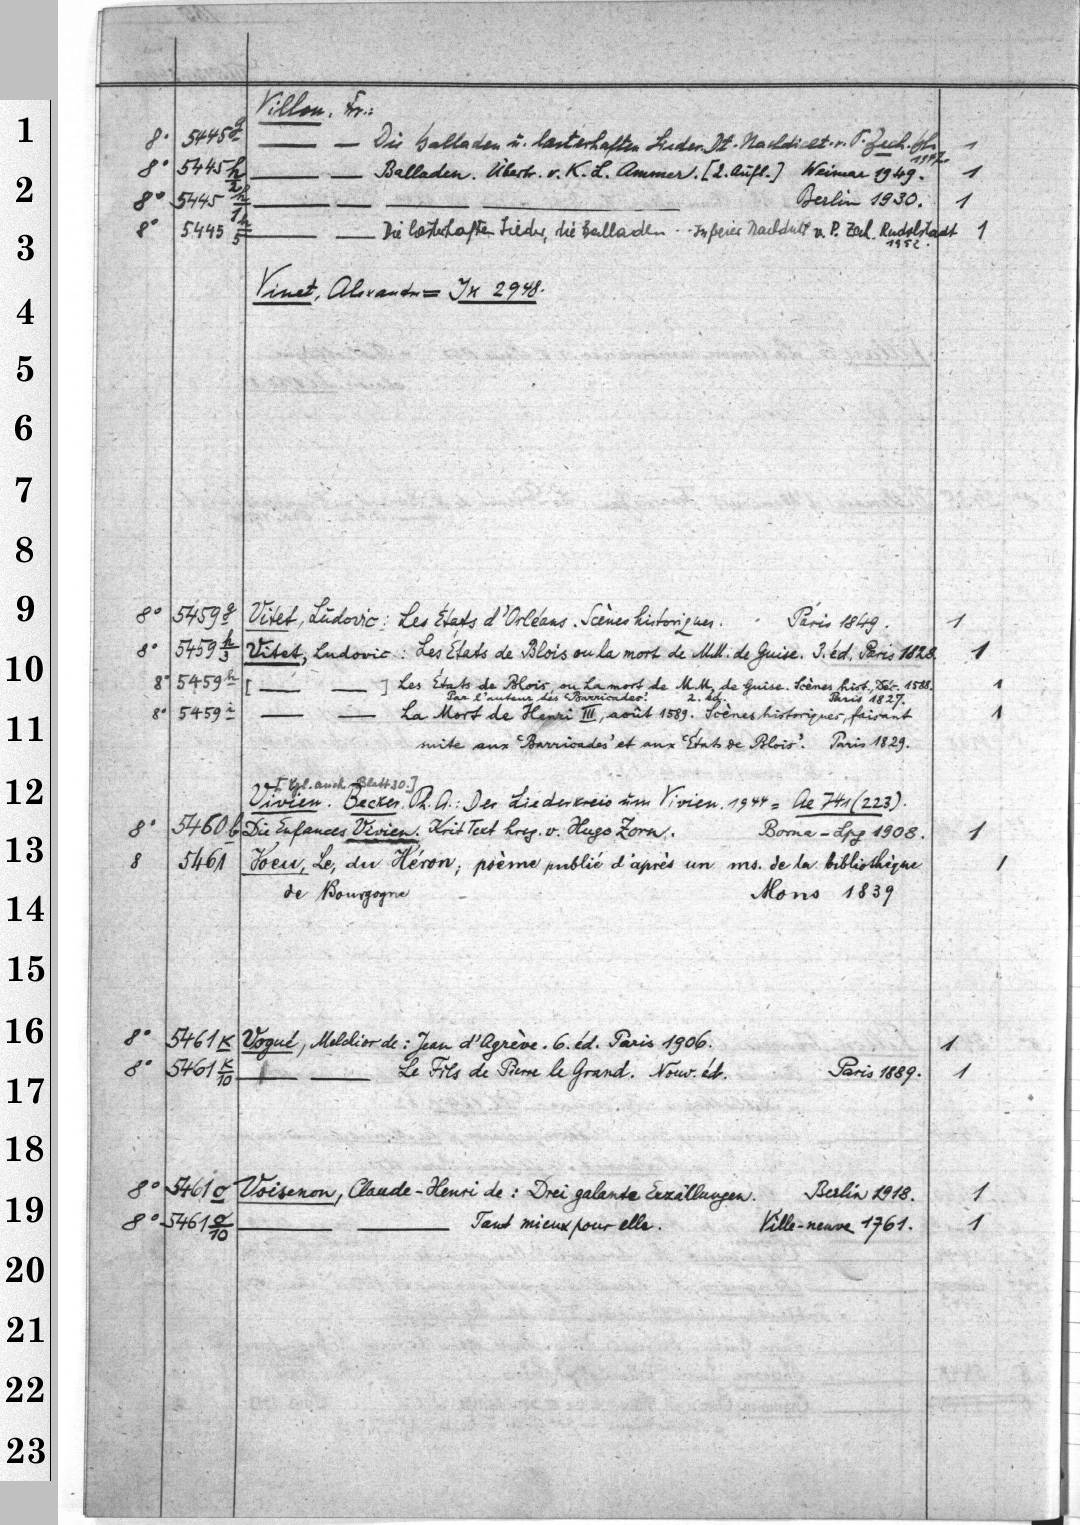 Villon, Fr.:
1 8° 5445 g — — Die Balladen u. lasterhaften Lieder. Dt. Nachdicht. v. P. Zech. 1
8° 5445 h — — Balladen. Übertr. v. K. L. Ammer. [2. Aufl.] Weimar 1949. 1
2 8° 5445 — — — — Berlin 1930. 1
3 8° 5445 h/5 — — Die lasterhaften Lieder, die Balladen Nachdicht v. P. Zech. Rudolstadt 1952. 1
4 Vinet, Alexandre = 2948.
5
6
7
8
9 8° 5459 g Vitet, Ludovic: Les États d'Orléans. Scènes historiques. Paris 1849. 1
10 8° 5459 h/3 Vitet, Ludovic: Les États de Blois ou la mort de MM. de Guise. 3. éd. Paris 1828. 1
8° 5459 h [— —] Les États de Blois ou la mort de M.M. de Guise. Scènes hist., Déc. 1588.
Par l'auteur des "Barricades". 2. éd. Paris 1827. 1
11 8° 5459 i — — La Mort de Henri III, août 1589. Scènes historiques, faisant 1
suite aux "Barricades" et aux "États de Blois". Paris 1829.
[Vgl. auch Blatt 30.]
12 Vivien. Becker, Ph. A.: Der Liederkreis um Vivien. 1944 = Ae 741 (223).
8° 5460 b Die Enfances Vivien. Krit Text hrsg. v. Hugo Zorn. Borna-Lpg 1908. 1
13 8 5461 Voeu, Le, du Héron; poème publié d'après un ms. de la bibliothèque 1
14 de Bourgogne Mons 1839
15
16 8° 5461 K Vogué, Melchior de: Jean d'Agrève. 6. éd. Paris 1906. 1
17 8° 5461 K/10 — — Le Fils de Pierre le Grand. Nouv. éd. Paris 1889. 1
18
19 8° 5461 o Voisenon, Claude-Henri de: Drei galante Erzällungen. Berlin 1918. 1
8° 5461 o/10 — — Tant mieux pour elle. Ville-neuve 1761. 1
20
21
22
23